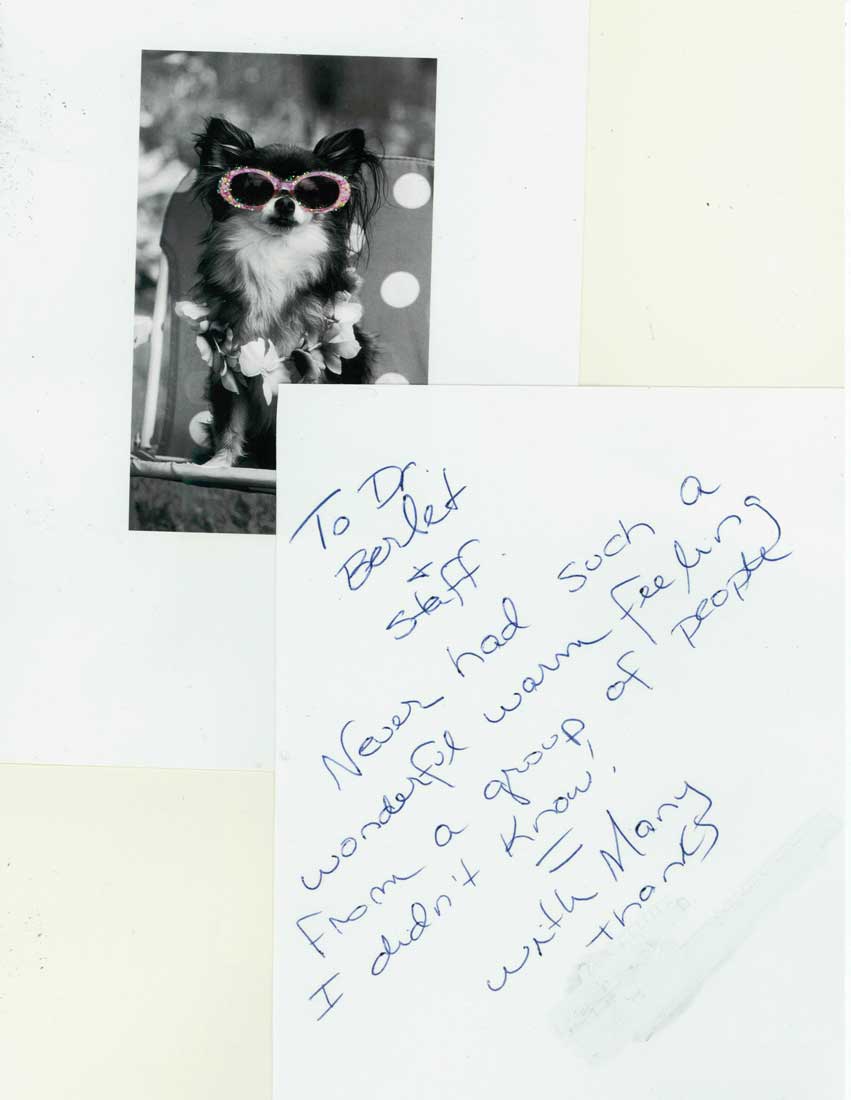 To Dr.
Berlet
+
Staff.
Never had such a
wonderful warm feeling
From a group of people
I didn't know!
with Many
thanks